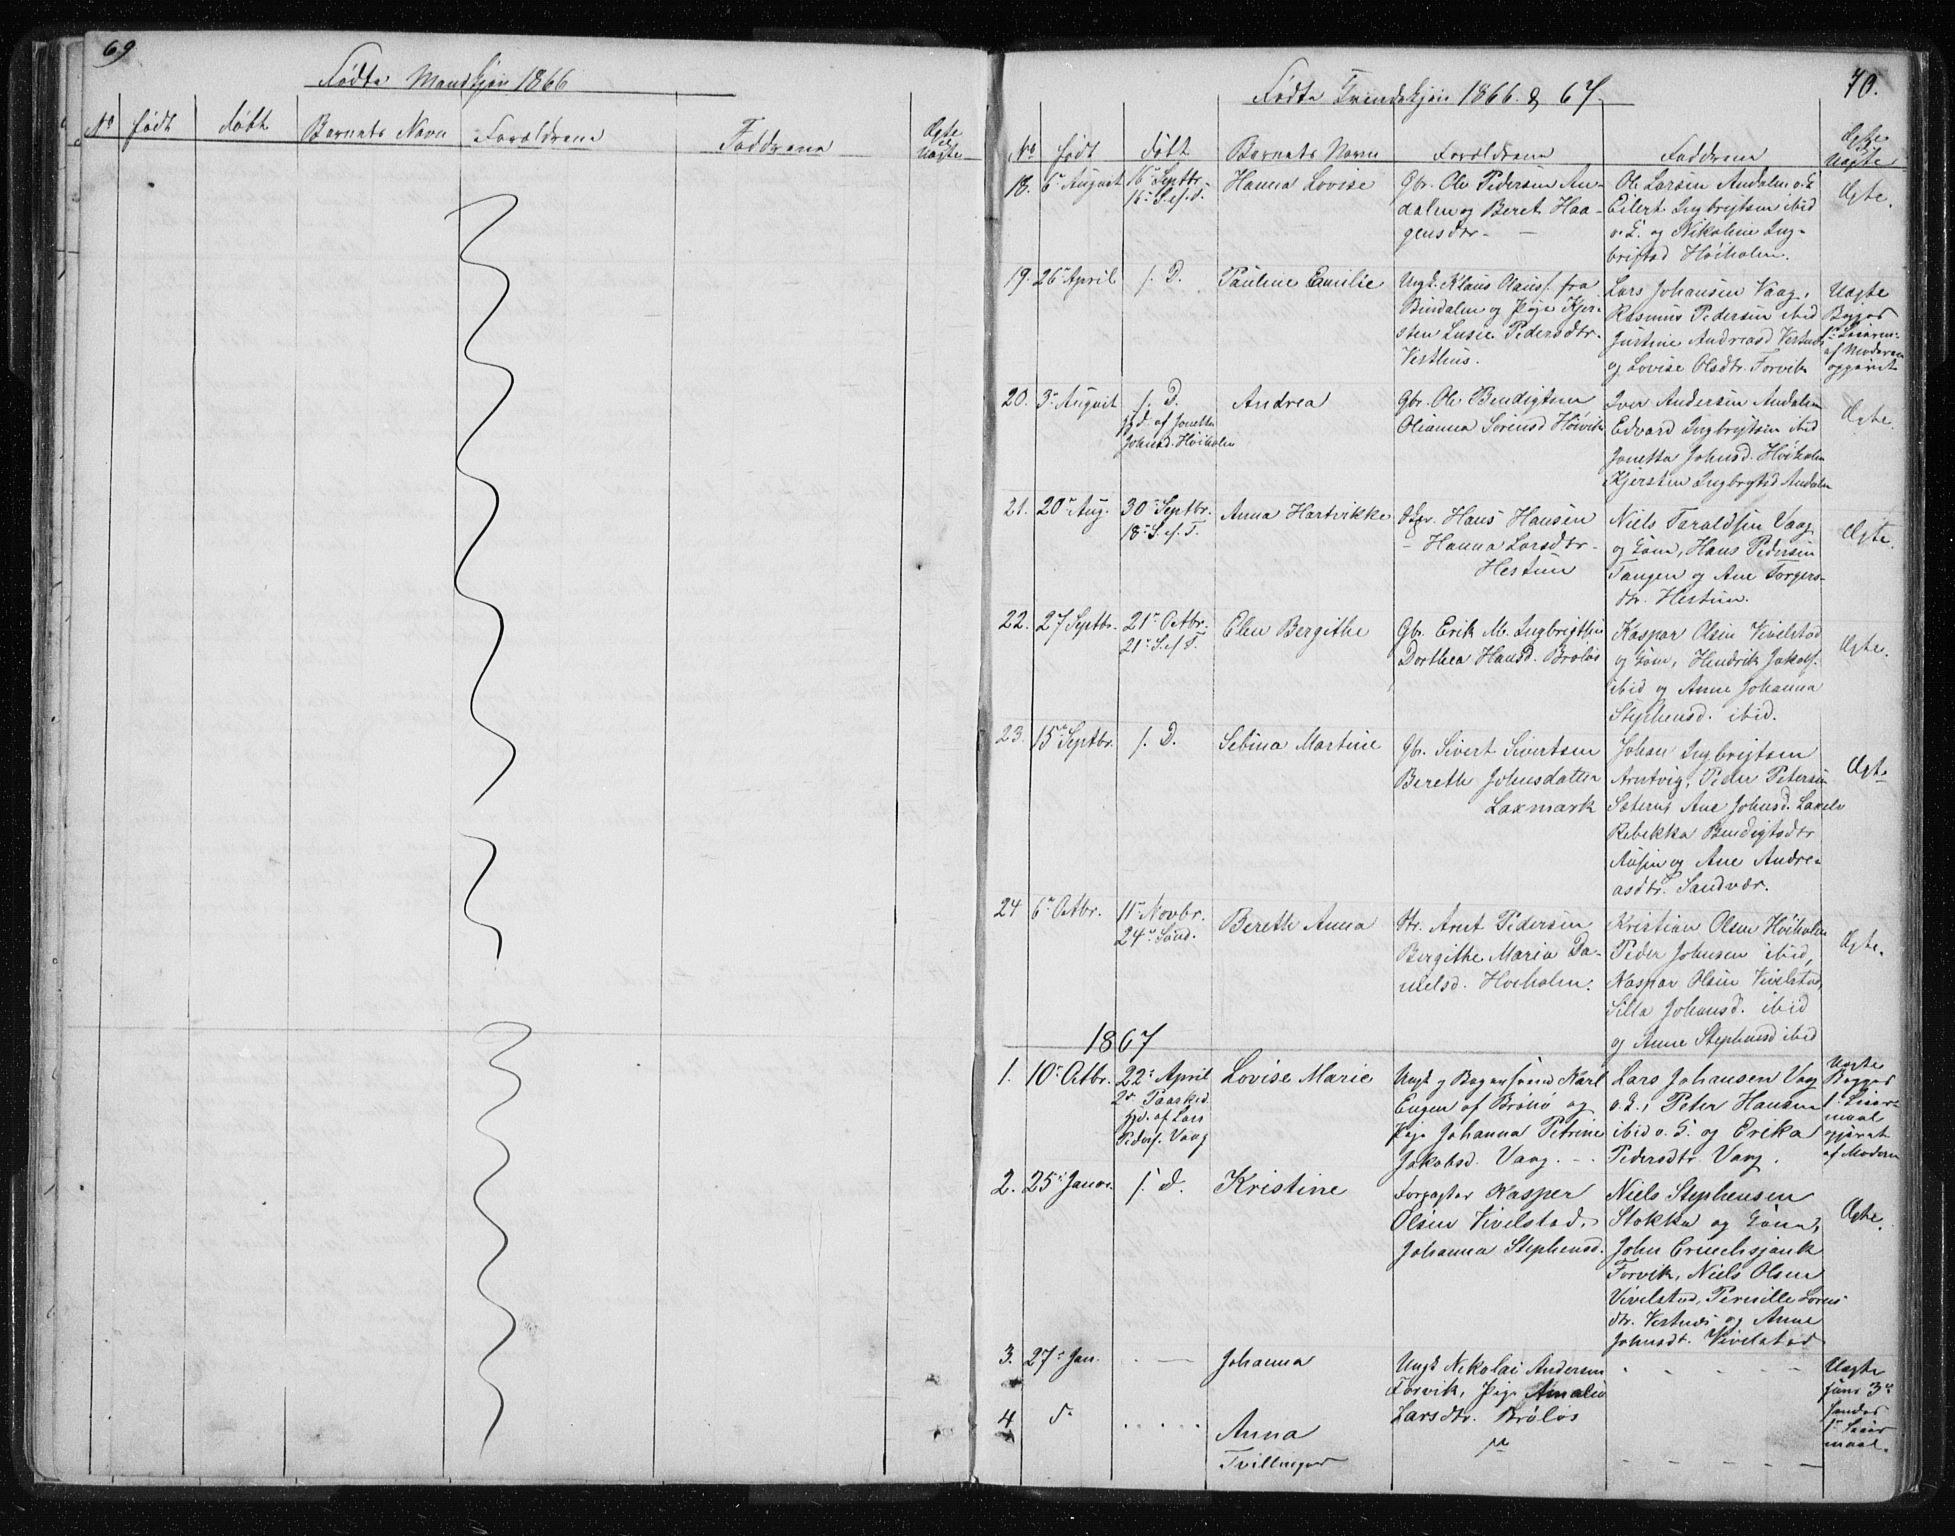 69
Fødte Mandkjøn 1866
No født døbt Barnets Navn Forældrene Faddrene Ægte el. Uægte
70.
Fødte Qvindekjøn 1866 & 67.
No født døbt Barnets Navn Forældrene Faddrene Ægte Uægte
18. 6te August 16de Septbr. 16de S. ef. T. Hanna Lovise
Gbr. Ole Pedersen An-
dalen og Beret Haa-
gensdtr.
Ole Larsen Andalen o. E
Eilert Ingbrigtsen ibid
o. E. og Nikoline Ing-
brigtsd Høiholm.
Ægte.
19. 26 April s. D. Pauline Emilie
Ungk. Klaus Olaus. fra
Bindalen og Pige Kjer-
sten Lusie Pedersdtr.
Visthus.
Lars Johansen Vaag,
Rasmus Pedersen ibid
Justine Andreasd Vistnes
og Lovise Olsdtr. Forvik
Uægte
Begges
1ste Leierm:
af Moderen
opgivet
20. 3die August s. D.
hjd. af Jonetta
Johnsd. Høiholm
Andrea
Gbr. Ole Bendigtsen
Olianna Sørensd Høivik
Iver Andersen Andalen
Edvard Ingbrigtsen ibid
Jonetta Johnsd. Høiholm
Kjersten Ingbrigtsd Andalen
Ægte.
21. 20de Aug. 30te Septbr. 18de S. ef. T. Anna Hartvikke
Hans Hansen
Hanna Larsdtr.
Hestun
Niels Taraldsen Vaag
og Kone, Hans Pedersen
Tangen og Ane Torgers-
dtr. Hestun.
Ægte.
22. 27 Septbr. 21de Octbr. 21de S. ef T. Elen Bergithe
Gbr. Erik M. Ingbrigtsen
Dorthea Hansd. Brøløs
Kaspar Olsen Vivelstad
og Kone, Hendrik Jakobs.
ibid og Anne Johanna
Stephensd. ibid.
Ægte.
23. 15de Septbr. s. D. Sebina Martine
Gbr. Sivert Sivertsen
Bereth Johnsdatter
Laxmark
Johan Ingbrigtsen
Arntvig, Peder Petersen
Sæternes Ane Johnsd. Laxelv
Rebekka Bendigtsdtr
og Ane Andre-
asdtr. Sandvær.
Ægte
24 6te Octbr. 11te Novbr. 24de Sønd. Bereth Anna
Str. Arnt Pedersen
Bergithe Maria Da-
nielsd. Høiholm.
Kristian Olsen Høiholm
Peder Johnsen ibid,
Kaspar Olsen Vivelstad,
Silla Johansd. ibid
og Anne Stephensd ibid
Ægte.
1867
1. 10de Octbr. 22de April
2d Paasked.
hjd. af Lars
Peders. Vaag
Lovise Marie
Ungk. og Karl
Eugen af Brønø og
Pige Johanna Petrine
Jakobsd. Vaag.
Lars Johansen Vaag
o. E., Peter Hansen
ibid o. E. og Erika
Pedersdtr. Vaag.
Uægte
Begges
1. Leier-
maal
opgivet
af Moderen
2. 25de Januar s. d. Kristine
Forpagter Kasper
Olsen Vivelstad,
Johanna Stephensd.
Niels Stephensen
Stokka og Kone,
John
Forvik, Niels Olsen
Vivelstad, Pernille Lorns
dtr. Vistnes og Anne
Johnsdt. Vivelstad
Ægte.
3. 27de Jan. Johanna
Ungk Nikolai Andersen
Forvik, Pige Amalie
Larsdtr. Brøløs
Uægte
hans 3die
hendes
1ste Leier
maal.
4. do Anna
Tvillinger